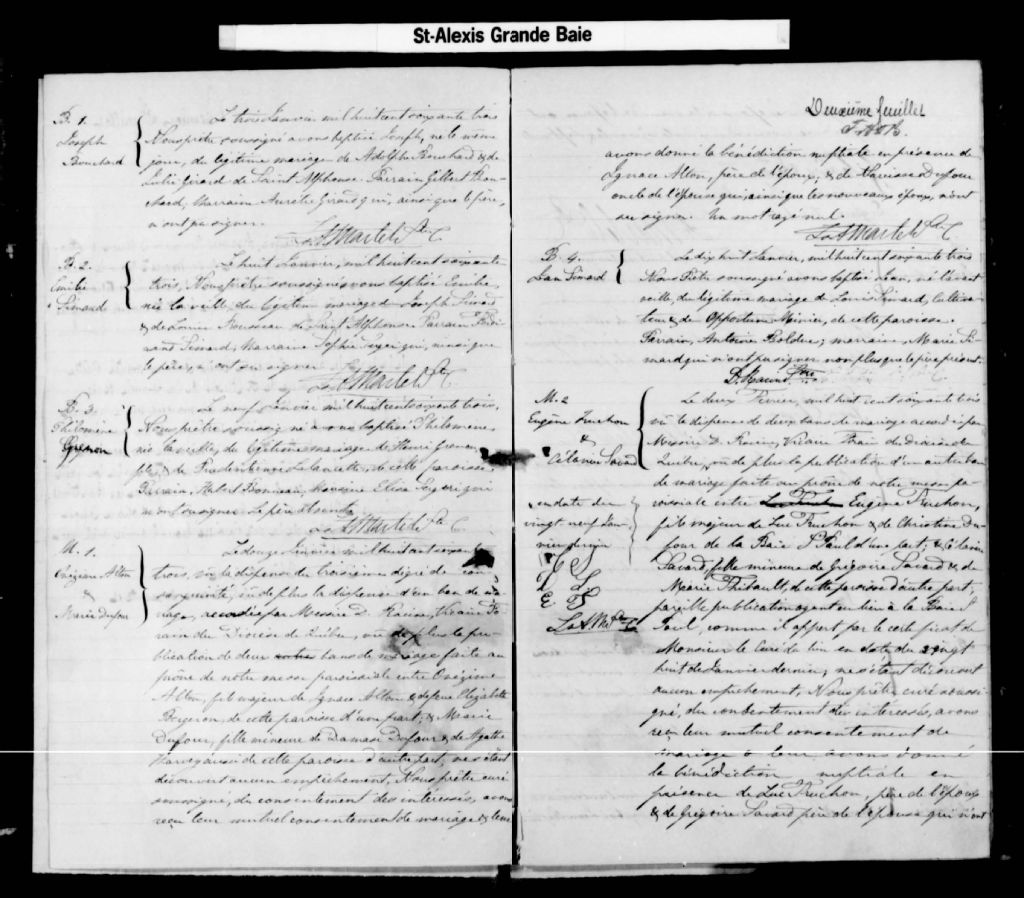 St-Alexis Grande Baie
B. 1.
Joseph
Bouchard
Le trois Janvier mil huit cent soixante trois
Nous prêtre soussigné avons baptisé Joseph, né le même
jour, du légitime mariage de Adolphe Bouchard & de
Julie Girard de Saint Alphonse. Parrain Gilbert
Marraine Aurélie Girard qui, ainsi que le père,
n'ont pu signer.
B. 2.
Emilie
Simard
Le huit Janvier, mil huit cent soixante
trois, Nous prêtre soussigné avons baptisé Emilie,
née la veille, du légitime mariage de Joseph Simard
& de Louise Rousseau de Saint Alphonse. Parrain
Simard, Marraine Sophie qui, ainsi que
le père, n'ont su signer.
B. 3
Philomène
Grenon
Le neuf Janvier mil huit cent soixante trois,
Nous prêtre soussigné avons baptisé Philomène,
née la veille, du légitime mariage de Henri Grenon
& de Prudentienne de cette paroisse.
Parrain, Hubert Marraine Elise qui
n'ont su signer. Le père absent.
M. 1.
Onézime
&
Marie Dufour
Le douze Janvier mil huit cent soixante
trois, vu la dispense du troisième degré de con-
sanguinité, vu de plus la dispense d'un ban de ma-
riage, accordée par Messire D. Racine, Vicaire Fo-
rain du Diocèse de Québec, vu de plus la pu-
blication de deux bans de mariage faite au
prône de notre messe paroissiale entre Onézime
fils majeur de Ignace & de feue Elizabeth
Bergeron, de cette paroisse d'une part; & Marie
Dufour, fille mineure de Damase Dufour & de Agathe
aussi de cette paroisse d'autre part, ne s'étant
découvert aucun empêchement, Nous prêtre curé
soussigné, du consentement des intéressés, avons
reçu leur mutuel consentement de mariage & leur
Deuxième feuillet
avons donné la bénédiction nuptiale en présence de
Ignace père de l'époux, & de Narcisse Dufour
oncle de l'épouse qui, ainsi que les nouveaux époux, n'ont
su signer. Un mot rayé nul.
B. 4.
Jean Simard
Le dix huit Janvier, mil huit cent soixante trois
Nous Prêtre soussigné avons baptisé Jean, né l'avant
veille, du légitime mariage de Louis Simard, Cultiva-
teur & de Opportune de cette paroisse.
Parrain, Antoine Bolduc; marraine, Marie Si-
mard qui n'ont pu signer non plus que le père présent.
M. 2
Eugène Truchon
&
Célanire Savard
Le deux Février, mil huit cent soixante trois
vu la dispense de deux bans de mariage accordée par
Messire D. Racine, Vicaire Forain du Diocèse de
Québec, vu de plus la publication d'un autre ban
de mariage faite au prône de notre messe pa-
roissiale entre Eugène Truchon,
fils majeur de Luc Truchon & de Christine Du-
four de la Baie St Paul d'une part; & Célanire
Savard, fille mineure de Grégoire Savard & de
Marie Thibault, de cette paroisse d'autre part,
pareille publication ayant eu lieu à la Baie St
Paul, comme il appert par le certificat de
Monsieur le Curé du lieu en date du vingt
huit de Janvier dernier, ne s'étant découvert
aucun empêchement, Nous prêtre curé soussi-
gné, du consentement des intéressés, avons
reçu leur mutuel consentement de
mariage & leur avons donné
la bénédiction nuptiale en
présence de Luc Truchon, père de l'époux
& de Grégoire Savard père de l'épouse qui n'ont
en date du
vingt neuf Jan-
vier dernier
T C
L S
E T